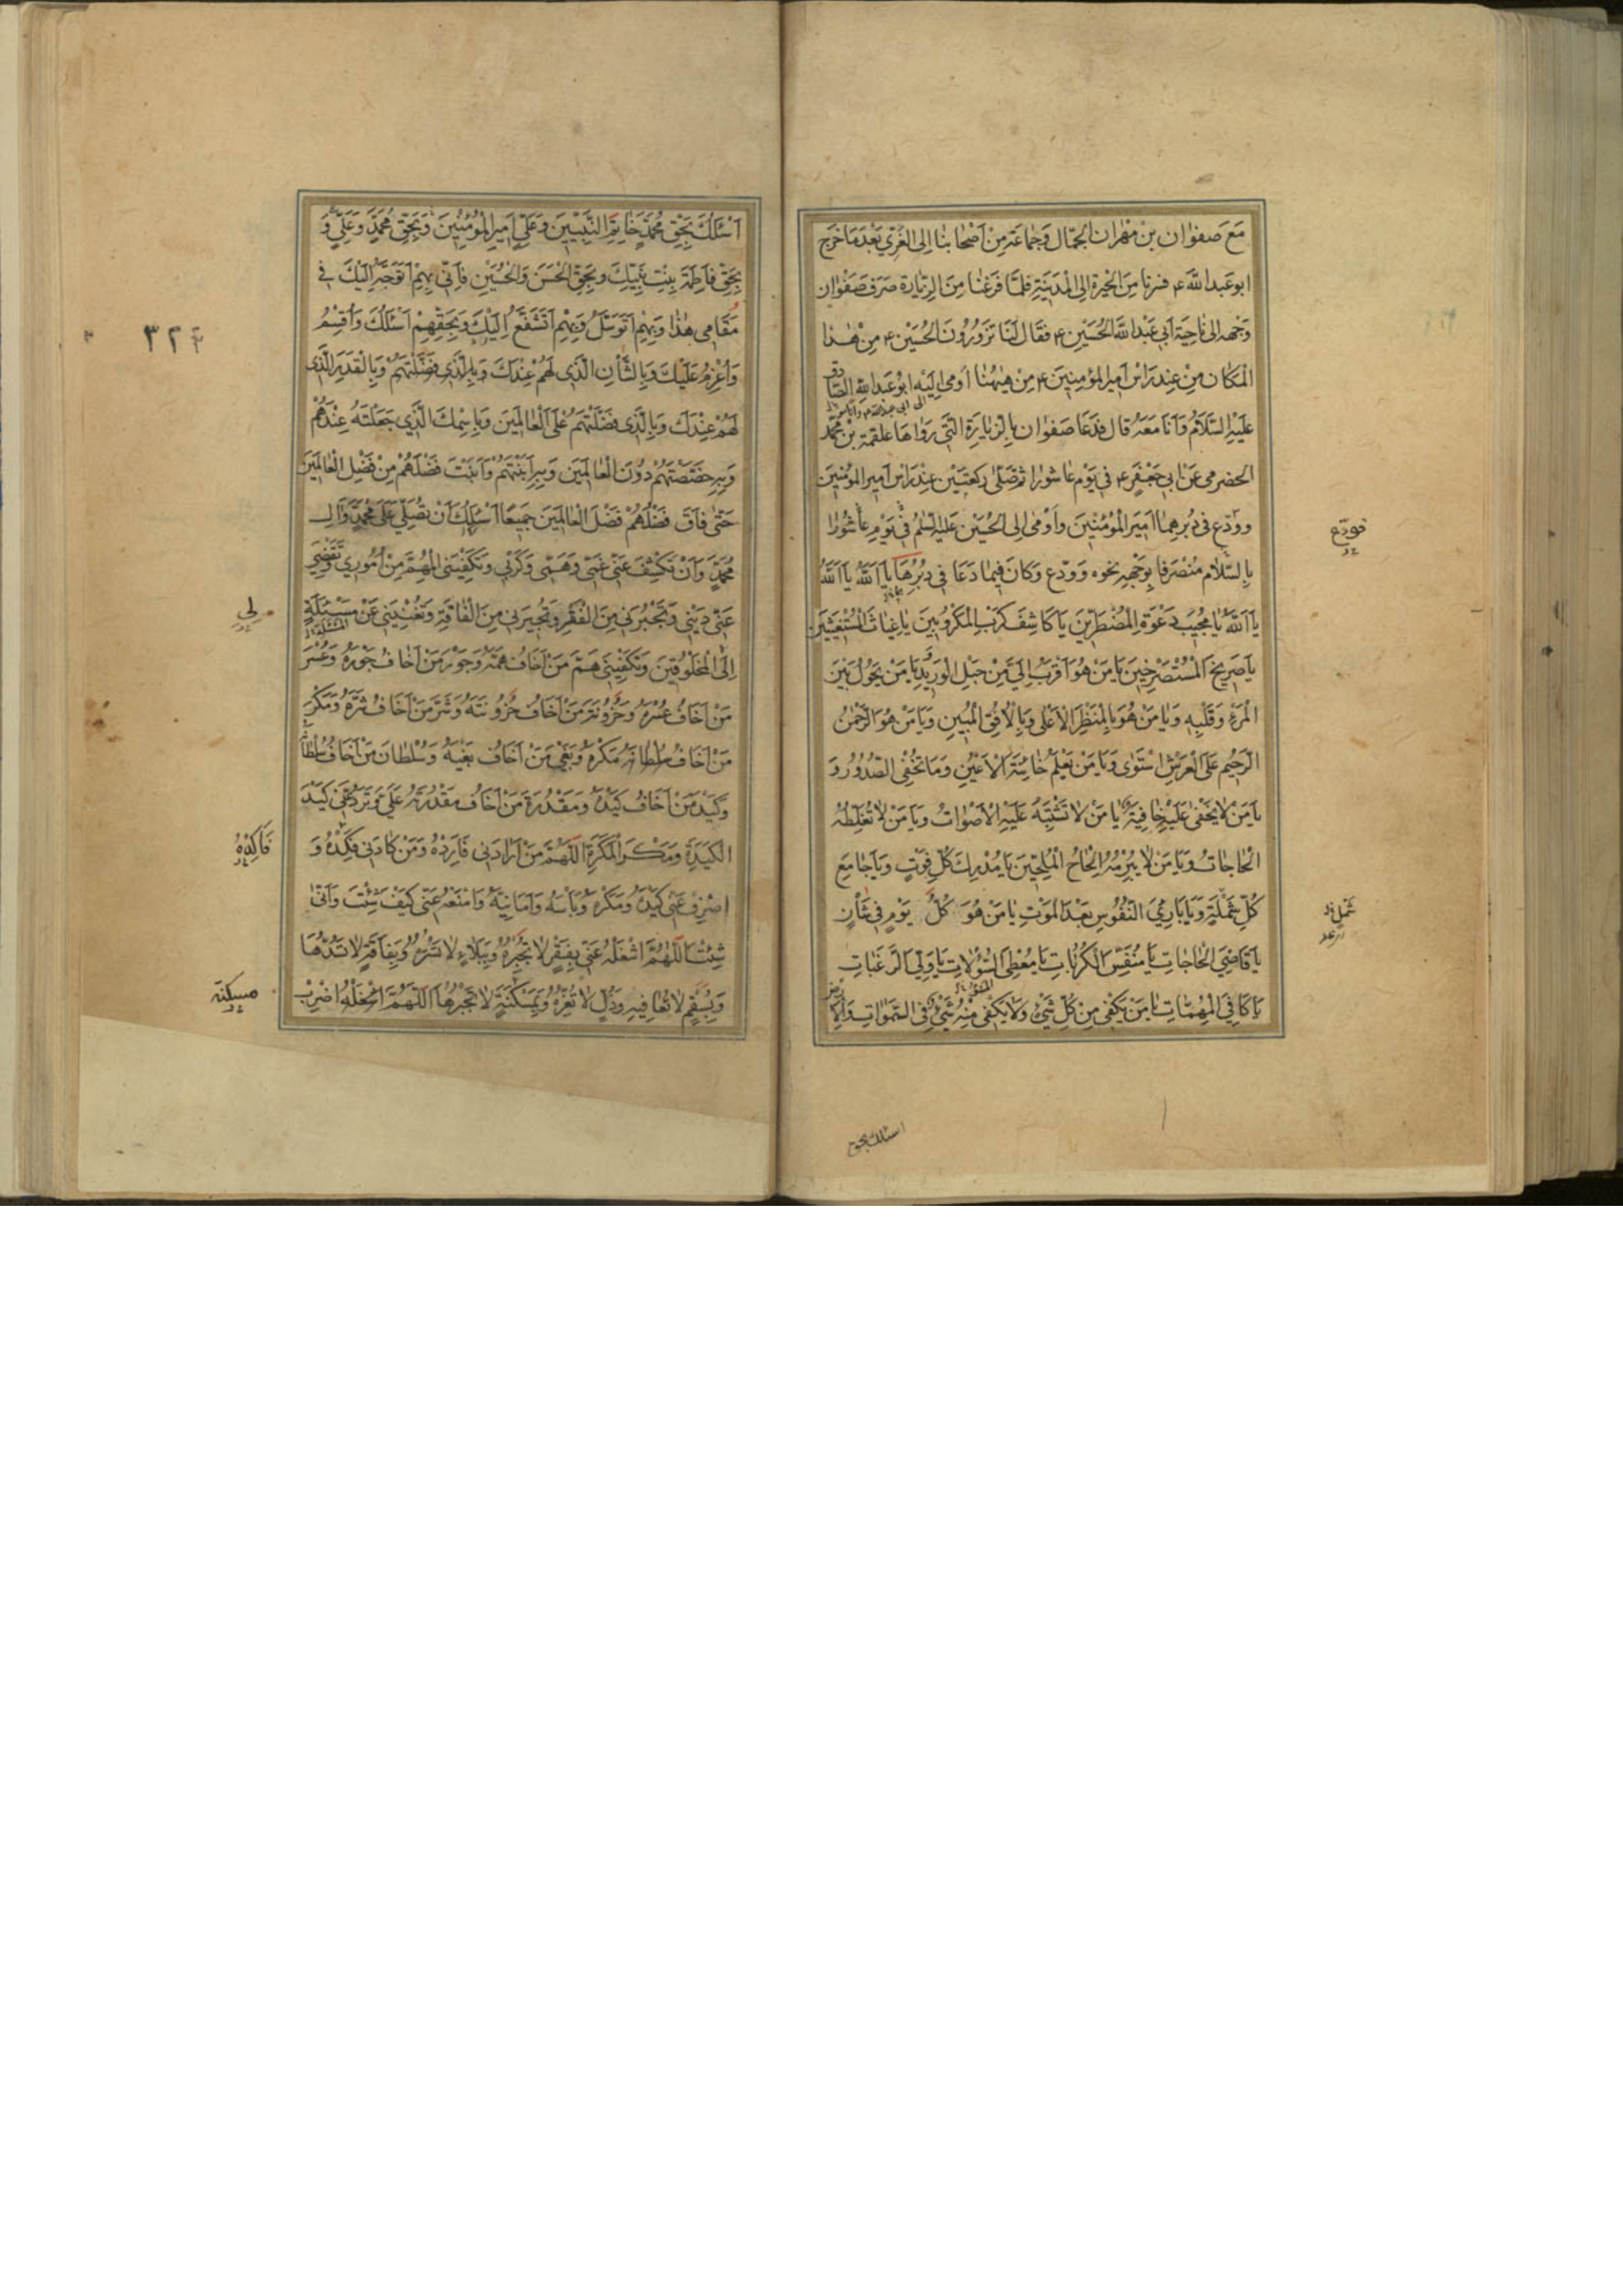 مَعَ صَفوٰان بن مهْران الجمّال وَجَماعَة مِنْ اَصْحابنا اِلى الغَرِيّ بَعْدَ مَا خَرَجَ
ابو عَبد الله ع فسرنا مِنَ الحيرة اِلى المَدينَةِ فلمّا فَرَغنا مِنَ الزيارة صَرَفَ صَفوٰان
وَجْهه اِلى نٰاحِيَة اَبى عَبْد الله الحُسَيْنِ ع فقٰال لَنَا تَزُورُونَ الحُسَيْن ع مِنْ هٰذا
المكان مِنْ عِند رَاْسِ اَمير المؤمِنِينَ ع مِنْ هيٰهُنا اَومى اِلَيْه ابُو عَبد اللهِ الصّادق
عَلَيْهِ السَّلَامُ وَاَنَا مَعَهُ قال فَدَعَا صَفوٰان بِالزِيٰارَةِ الّتى رَوٰاها علقمة بْن محمّد
الحضرمى عَنْ ابى جَعْفَرٍ ع فى يَوْم عاشورا ثمّ صَلّى ركعتَيْن عِنْدَ رَاْس اَمير المؤمِنين
وودّع فى دُبرهِمٰا اَمِيرَ المؤمِنْينَ وَاَوْمىٰ اِلى الحُسَيْن عَليْهِ السَّلم فى يَوْمِ عاشُورٰا
بِالسّلٰام مُنْصَرفا بِوَجْههِ نحوه وَودّع وَكانَ فيمٰا دَعَا فى دُبُرِهَا يٰا اَللّهُ يٰا اَللّهُ
يٰا اَللّهُ يٰا مُجيْبَ دَعْوَةِ المُضْطَرّينَ يٰا كاشِفَ كَرْبِ المَكْرُوبينَ يٰا غِيٰاثَ المُسْتَغيثينَ
يٰا صَريخَ المُسْتَصْرِخينَ يٰا مَنْ هُوَ اَقْرَبُ اِلَيَّ مِنْ حَبْلِ الْوَريدِ يٰا مَنْ يَحُولُ بَيْنَ
الْمَرْءِ وَقَلْبِهِ وَيٰا مَنْ هُوَ بِالمَنْظَرِ الاَعْلى وَبِالْاُفُقِ المُبينِ وَيٰا مَنْ هُوَ الرَّحْمٰنُ
الرَّحيْم عَلَى الْعَرْشِ اسْتَوٰى وَيٰا مَنْ يَعْلَمُ خٰائِنَةَ الاَعْيُنِ وَمَا تُخْفِى الصُّدُوُر وَ
يٰا مَنْ لٰا يَخْفٰى عَلَيْهِ خٰافِيَةٌ يٰا مَنْ لٰا تَشْتَبِهُ عَلَيْهِ الْاَصْوٰاتُ وَيٰا مَنْ لٰا تُغَلِّطُهُ
الْحٰاجٰاتُ وَيٰا مَنْ لٰا يُبْرِمُهُ اِلْحٰاحُ المُلِحّينَ يٰا مُدْرِكَ كُلِّ فَوْتٍ وَيٰا جٰامِعَ
كُلِّ شَمْلَةٍ وَيٰا بٰارِئَ النُّفُوسِ بَعْدَ الْمَوْتِ يٰا مَنْ هُوَ كُلَّ يَوْمٍ فى شَأْنٍ
يٰا قٰاضِىَ الْحٰاجٰاتِ يٰا مُنَفِّسَ الْكُرُبٰاتِ يٰا مُعْطِىَ السُّؤُلاتِ يٰا وَلِىَّ الرَّغَبٰاتِ
يٰا كٰافِىَ الْمُهِمّٰاتِ يٰا مَنْ يَكْفى مِنْ كُلِّ شَىْءٍ وَلٰا يَكْفى مِنْهُ شَىْءٌ فِى السَّمٰوٰاتِ وَالْاَرْضِ
فودّع
شمل
اسئلك بحق
اَسْئَلُكَ بِحَقِّ مُحَمَّدٍ خٰاتِمِ النَّبِيّينَ وَعَلِىٍّ اَميرِ الْمُؤْمِنينَ وَبِحَقِّ مُحَمَّدٍ وَعَلِىٍّ وَ
بِحَقِّ فٰاطِمَةَ بِنْتِ نَبِيِّكَ وَبِحَقِّ الْحَسَنِ وَالْحُسَيْنِ فَاِنّى بِهِمْ اَتَوَجَّهُ اِلَيْكَ فى
مَقٰامى هٰذٰا وَبِهِمْ اَتَوَسَّلُ وَبِهِمْ اَتَشَفَّعُ اِلَيْكَ وَبِحَقِّهِمْ اَسْئَلُكَ وَاُقْسِمُ
وَاَعْزِمُ عَلَيْكَ وَبِالشَّأْنِ الَّذى لَهُمْ عِنْدَكَ وَبِالَّذى فَضَّلْتَهُمْ وَبِالْقَدْرِ الَّذى
لَهُمْ عِنْدَكَ وَبِالَّذى فَضَّلْتَهُمْ عَلَى الْعٰالَمينَ وَبِاسْمِكَ الَّذي جَعَلْتَهُ عِنْدَهُمْ
وَبِهِ خَصَصْتَهُمْ دُوُنَ الْعٰالَمينَ وَبِهِ اَبَنْتَهُمْ وَاَبَنْتَ فَضْلَهُمْ مِنْ فَضْلِ الْعٰالَمينَ
حَتّٰى فٰاقَ فَضْلُهُمْ فَضْلَ الْعٰالَمينَ جَميعًا اَسْئَلُكَ اَنْ تُصَلِّىَ عَلىٰ مُحَمَّدٍ وَاٰلِ
مُحَمَّدٍ وَاَنْ تَكْشِفَ عَنّى غَمّى وَهَمّى وَكَرْبى وَتَكْفِيَنِى الْمُهِمَّ مِنْ اُمُوري وَتَقْضِيَ
عَنّى دَيْنى وَتَجْبُرَنى مِنَ الْفَقْرِ وَتُجيرَنى مِنَ الْفٰاقَةِ وَتُغْنِيَنى عَنْ مَسْئَلَةِ
اِلَى الْمَخْلُوقينَ وَتَكْفِيَنى هَمَّ مَنْ اَخٰافُ هَمَّهُ وَجَوْرَ مَنْ اَخٰافُ جَوْرَهُ وَعُسْرَ
مَنْ اَخٰافُ عُسْرَهُ وَحُزُونَةَ مَنْ اَخٰافُ حُزُونَتَهُ وَشَرَّ مَنْ اَخٰافُ شَرَّهُ وَمَكْرَ
مَنْ اَخٰافُ مَكْرَهُ وَبَغْىَ مَنْ اَخٰافُ بَغْيَهُ وَسُلْطٰانَ مَنْ اَخٰافُ سُلْطٰانَهُ
وَكَيْدَ مَنْ اَخٰافُ كَيْدَهُ وَمَقْدُرَةَ مَنْ اَخٰافُ مَقْدُرَتَهُ عَلَىَّ وَتَرُدَّ عَنّى كَيْدَ
الْكَيَدَةِ وَمَكْرَ الْمَكَرَةِ اَللّٰهُمَّ مَنْ اَرٰادَنى فَاَرِدْهُ وَمَنْ كٰادَنى فَكِدْهُ وَ
اصْرِفْ عَنّى كَيْدَهُ وَمَكْرَهُ وَبَأْسَهُ وَاَمٰانِيَّهُ وَامْنَعْهُ عَنّى كَيْفَ شِئْتَ وَاَنّٰى
شِئْتَ اَللّٰهُمَّ اشْغَلْهُ عَنّى بِفَقْرٍ لٰا تَجْبُرُهُ وَبِبَلٰاءٍ لٰا تَسْتُرُهُ وَبِفٰاقَةٍ لٰا تَسُدُّهٰا
وَبِسُقْمٍ لٰا تُعٰافيهِ وَذُلٍّ لٰا تُعِزُّهُ وَبِمَسْكَنَةٍ لٰا تَجْبُرُهٰا اَللّٰهُمَّ اضْرِبْ
٣٢٢
لى
فَاَكِدْهُ
مسكنة